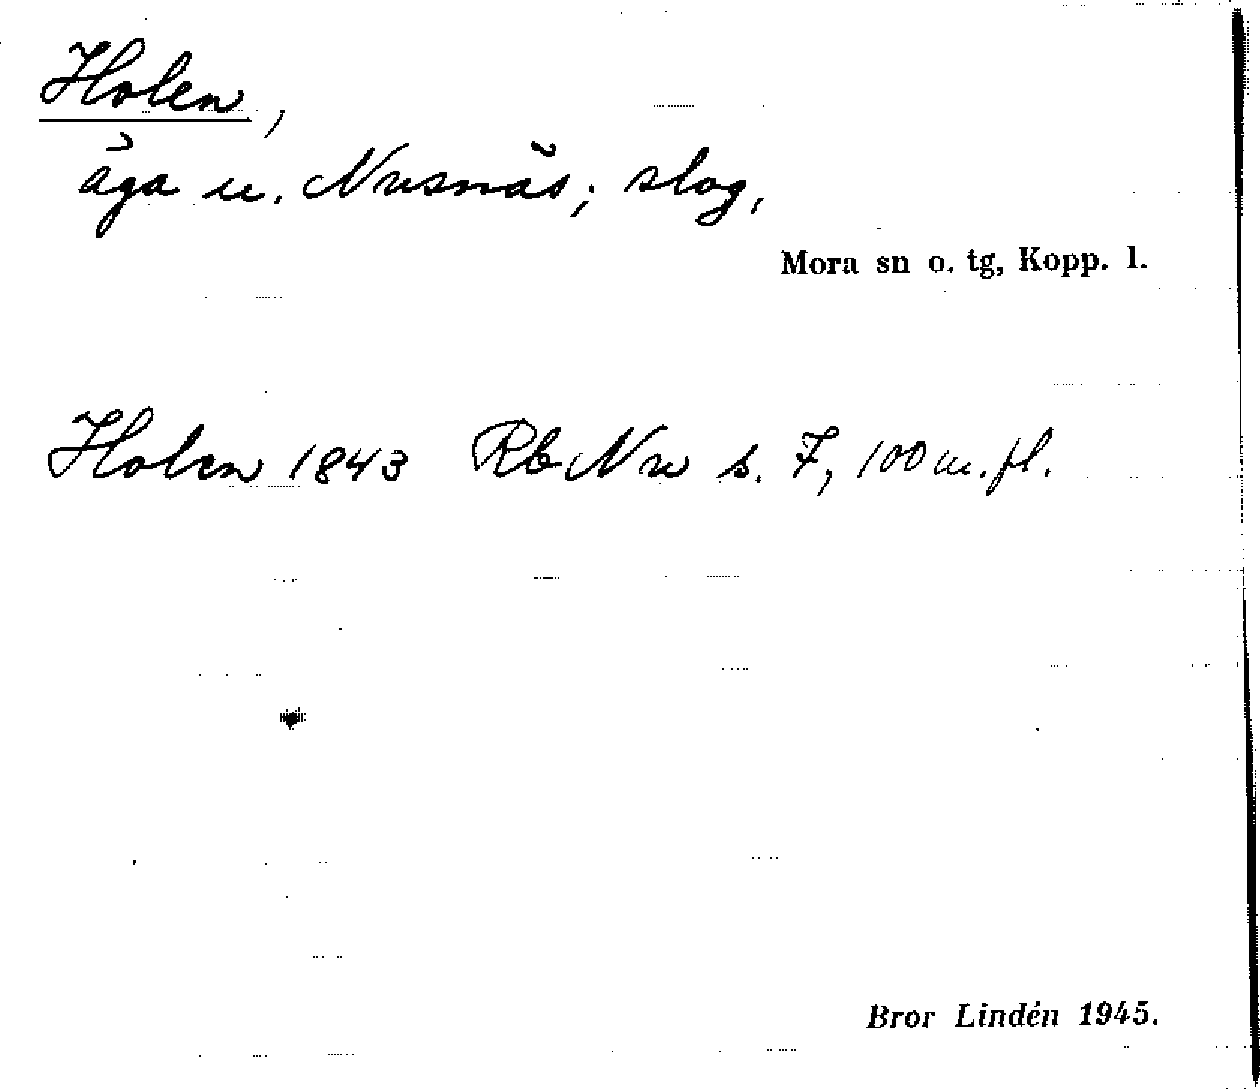 Holen,
äga u. Nusnäs; slog,
Mora sn o. tg, Kopp. l.
Holen 1843 Rb Nu s. 7, 100 m. fl.
Bror Lindén 1945.